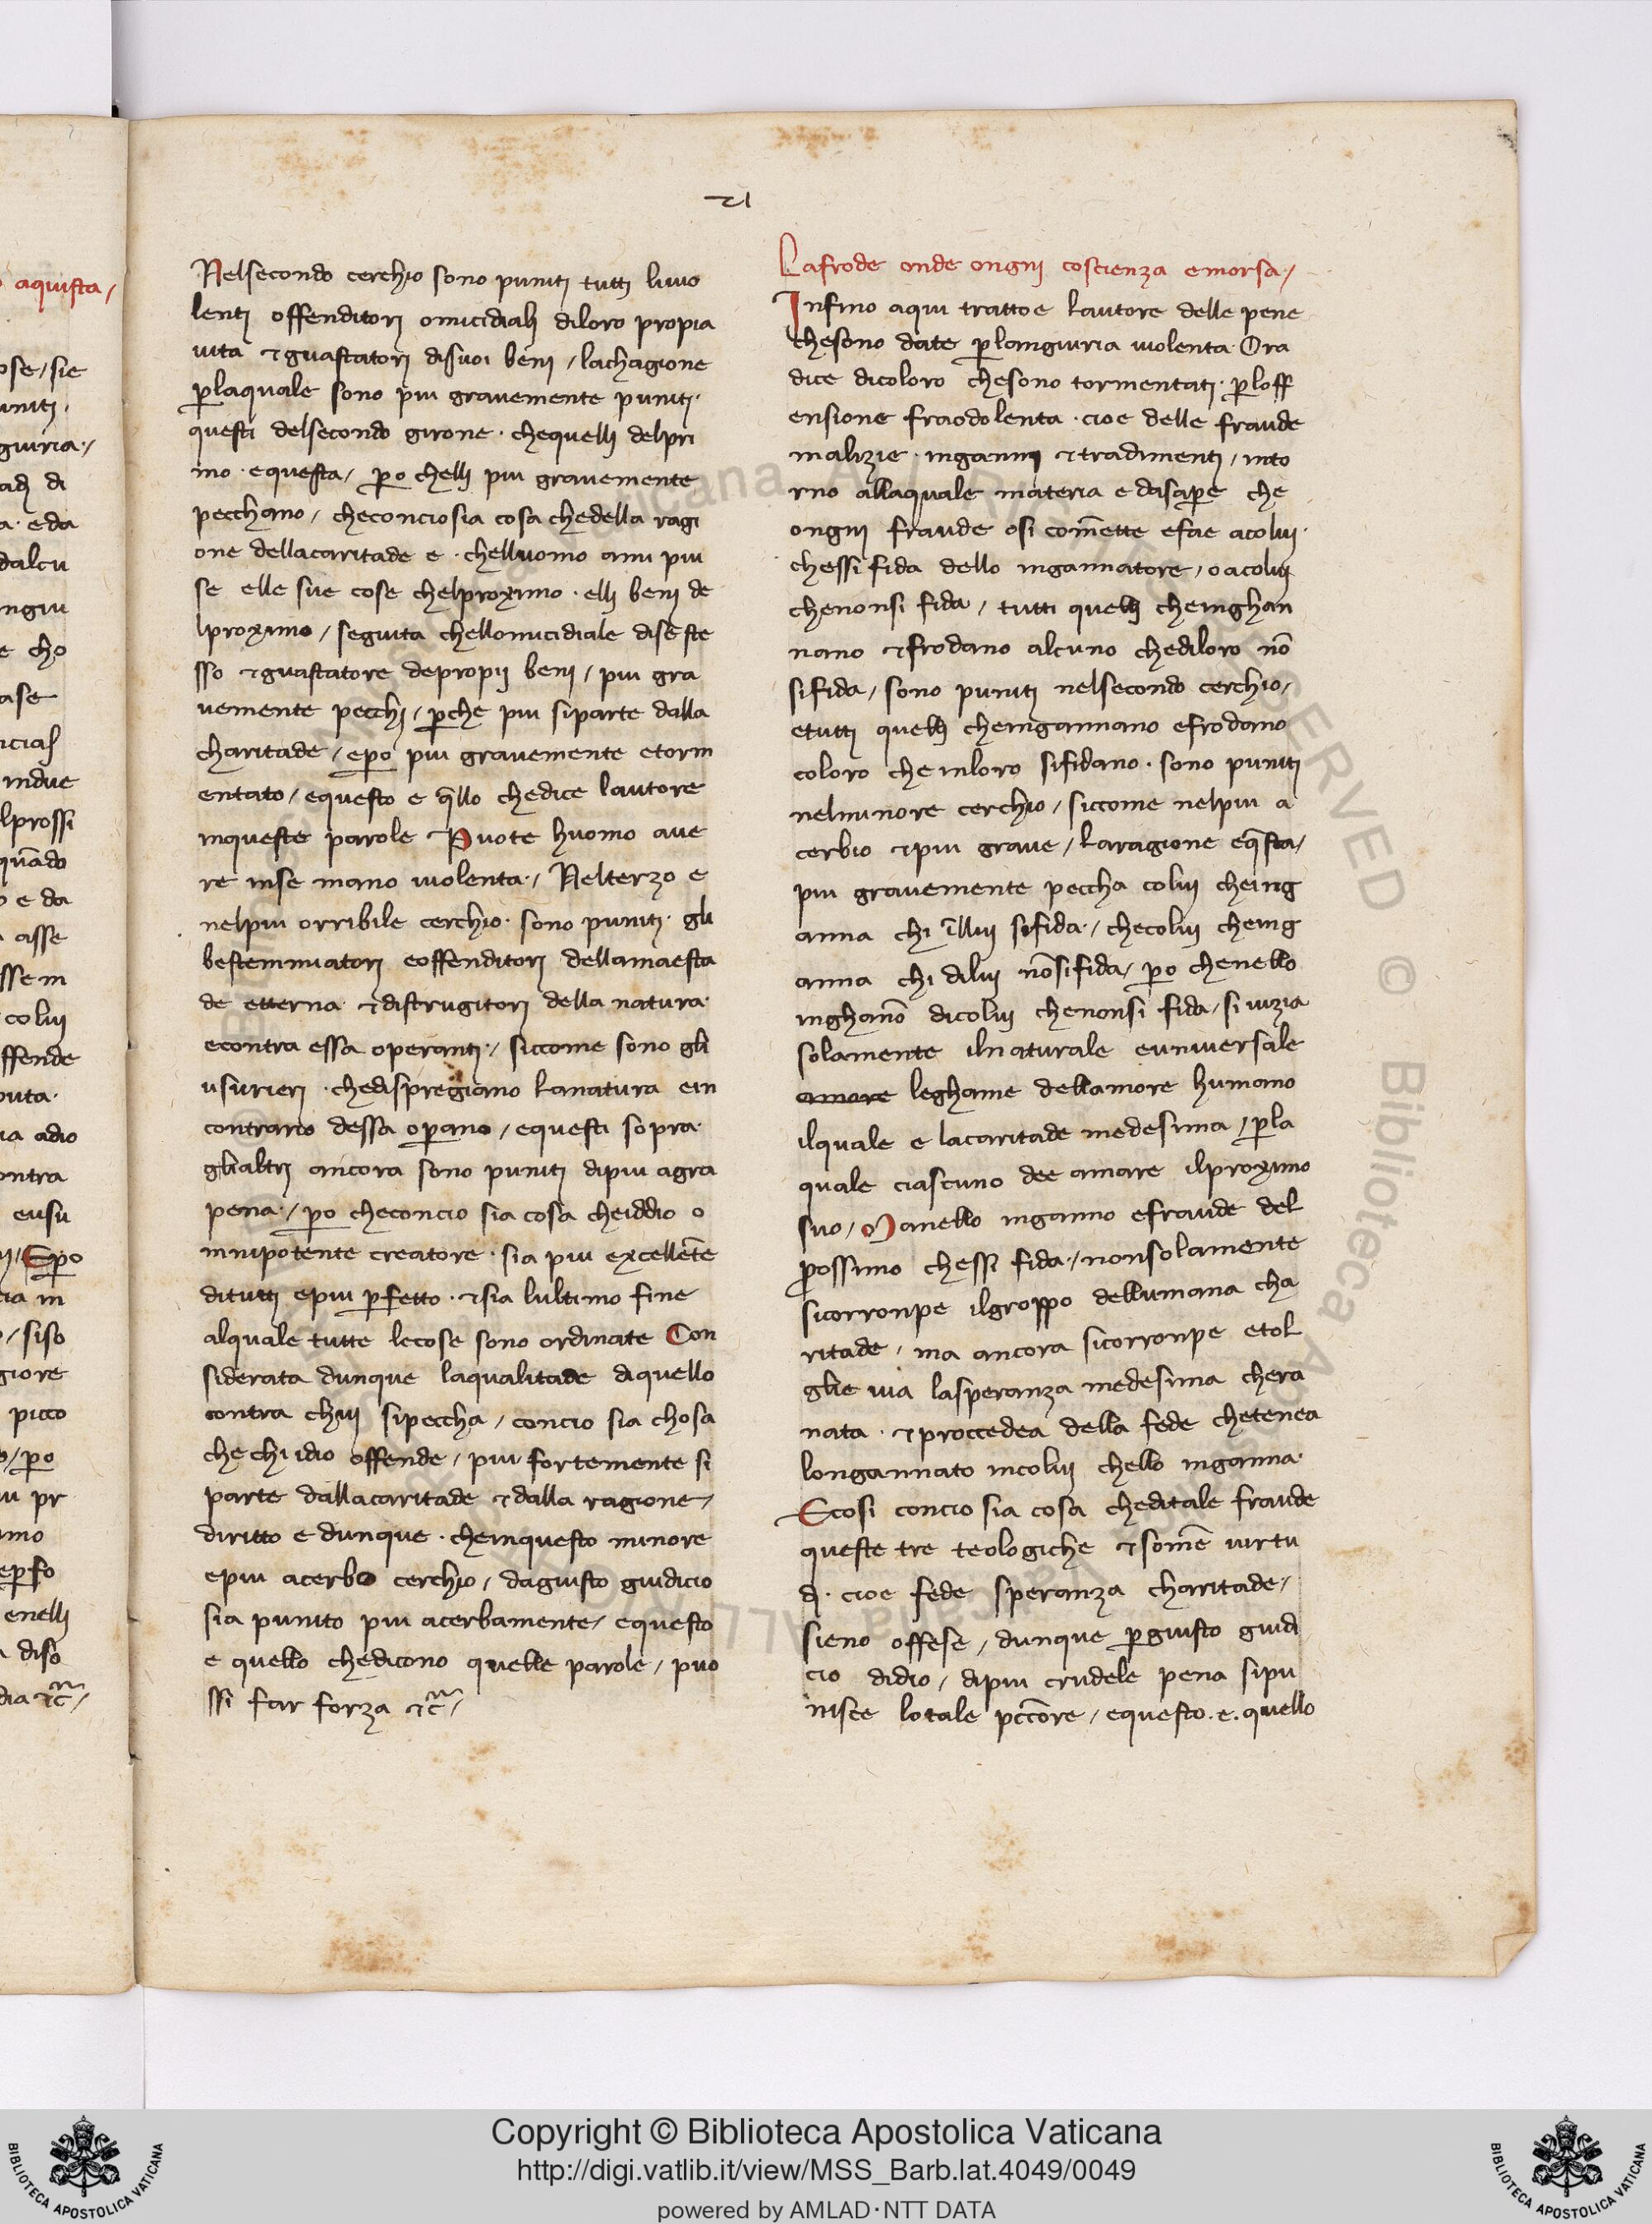 21
Nelsecondo cerchio sono puniti tutti liuio
lenti offenditori omicidiali diloro propia
uita ⁊guastatori disuoi beni / lachagione
p̱laquale sono piu grauemente puniti·
questi delsecondo girone · chequelli delpri
mo · equesta / p̱o chelli piu grauemente
pecchano / checonciosia cosa chedella ragi
one dellacaritade e · chelluomo ami piu
se elle sue cose chelproximo · elli beni de
lproximo / seguita chellomicidiale disešte
sso ⁊guastatore depropij beni / piu gra
uemente pecchi / p̱che piu siparte dalla
charitade / ep̱o piu grauemente etorm
entato / equesto e q̄llo chedice lautore
inqueste parole ⁊ Puote huomo aue
re inse mano uiolenta·/ Nelterzo e
nelpiu orribile cerchio· sono puniti· gli
bestemmiatori eoffenditori dellamaesta
de etterna· ⁊distrugitori della natura·
econtra essa operanti·/ siccome sono gli
usurieri · chedispregiano lanatura ein
contrario dessa op̱ano / equesti sopra·
glialtri ancora sono puniti dipiu agra
pena·/ p̱o checoncio sia cosa cheiddio o
nnipotente creatore · sia piu excellēte
ditutti epiu p̱fetto · ⁊sia lultimo fine
alquale tutte lecose sono ordinate Con
siderata dunque laqualitade diquello
contra chui sipeccha / concio sia chosa
che chi idio offende / piu fortemente si
parte dallacaritade ⁊dalla ragione /
diritto e dunque · cheinquesto minore
epiu acerbo cerchio / dagiusto giudicio
sia punito piu acerbamente / equesto
e quello chedicono quelle parole / puo
ssi far forza ⁊c̄ /
Lafrode onde ongni coscienza emorsa·/
Infino aqui trattoe lautore delle pene
chesono date p̱langiuria uiolenta· Ora
dice dicoloro chesono tormentati· p̱loff
ensione fraodolenta · cioe delle fraude
malizie · inganni ⁊tradimenti / into
rno allaquale materia e dasap̱e che
ongni fraude osi com̄ette efae acolui·
chessi fida dello ingannatore / oacolui
chenonsi fida / tutti quelli cheinghan
nano ⁊frodano alcuno chediloro nō
sifida / sono puniti nelsecondo cerchio /
etutti quelli cheingannano efrodano
coloro che inloro sifidano · sono puniti
nelminore cerchio / siccome nelpiu a
cerbio ⁊piu graue / laragione eq̄sta /
piu grauemente peccha colui cheing
anna chi īllui sifida·/ checolui cheing
anna chi dilui nōsifida / p̱o chenello
inghan̄o dicolui chenonsi fida / si uizia
solamente ilnaturale euniuersale
amore leghame dellamore humano
ilquale e lacaritade medesima / p̱la
quale ciascuno dee amare ilproximo
suo / Manello inganno efraude del
p̱ossimo chessi fida·/ nonsolamente
sicorronpe ilgroppo dellumana cha
ritade / ma ancora sicorronpe etol
glie uia lasperanza medesima chera
nata · ⁊proccedea della fede chetenea
longannato incolui chello inganna·
Ecosi concio sia cosa cheditale fraude
queste tre teologiche ⁊som̄e uirtu
di · cioe fede speranza charitade /
sieno offese / dunque p̱giusto giudi
cio didio / dipiu crudele pena sipu
nisce lotale pcc̄ore / equesto · e · quello
aquista /
Copyright © Biblioteca Apostolica Vaticana
http://digi.vatlib.it/view/MSS_Barb.lat.4049/0049
powered by AMLAD·NTT DATA
BIBLIOTECA APOSTOLICA VATICANA
BIBLIOTECA APOSTOLICA VATICANA